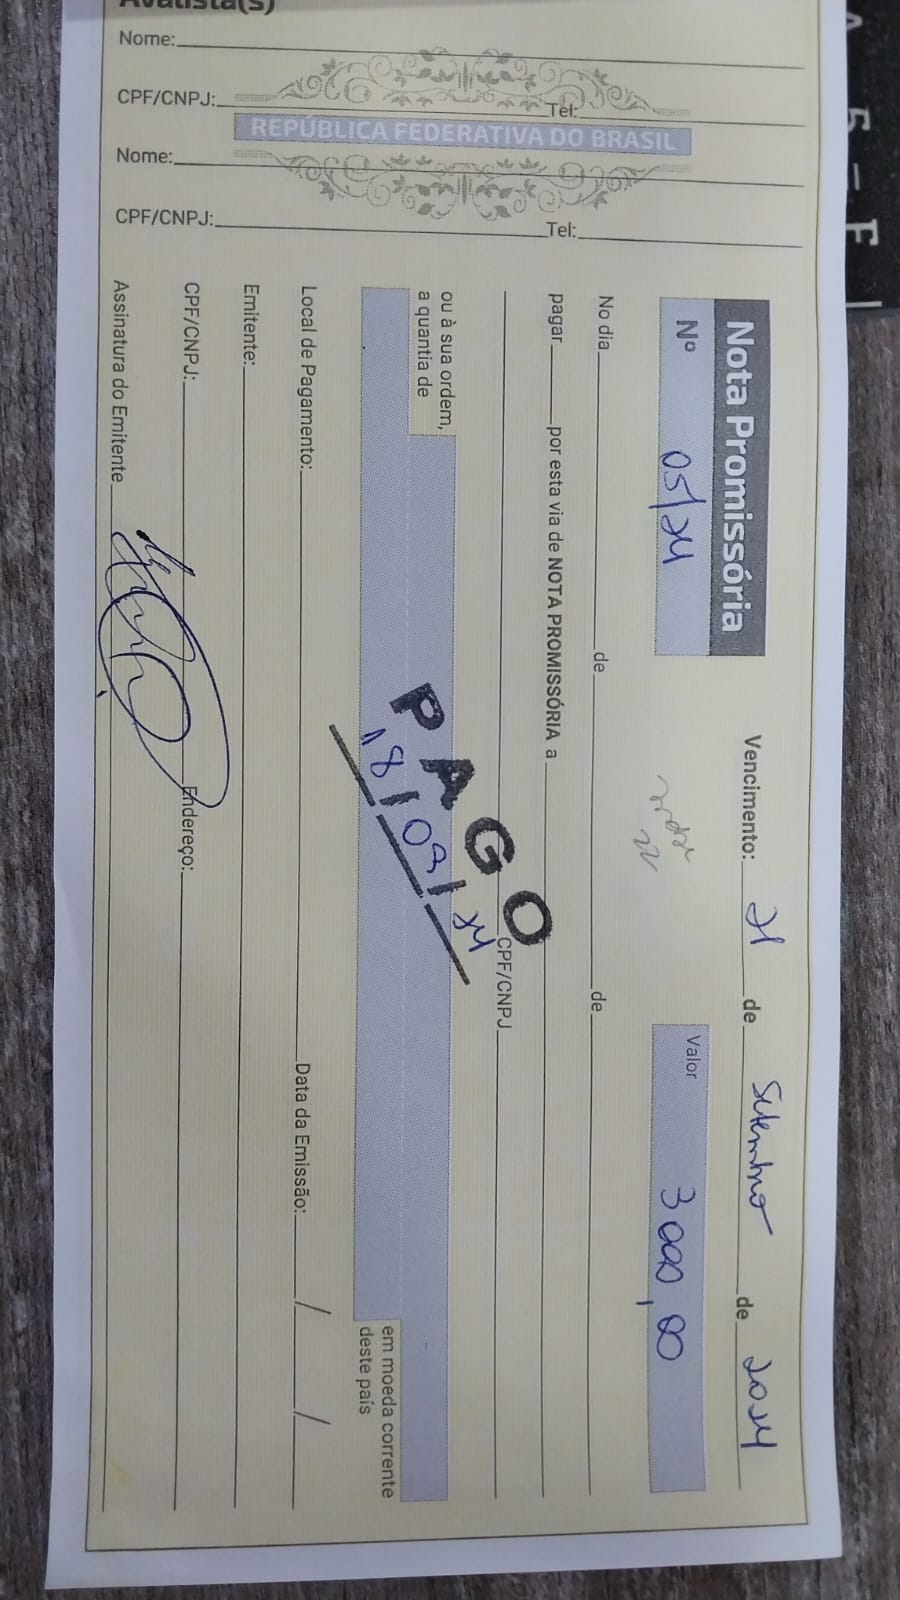 Avalista(s)
Nome:
CPF/CNPJ: Tel:
REPÚBLICA FEDERATIVA DO BRASIL
Nome:
CPF/CNPJ: Tel:
Nota Promissória
Vencimento: 21 de Setembro de 2024
Nº 05/24
Valor 3000,00
No dia de de
pagar por esta via de NOTA PROMISSÓRIA a
CPF/CNPJ
ou à sua ordem,
a quantia de
em moeda corrente
deste país
PAGO
18/09/24
Local de Pagamento: Data da Emissão: / /
Emitente:
CPF/CNPJ: Endereço:
Assinatura do Emitente